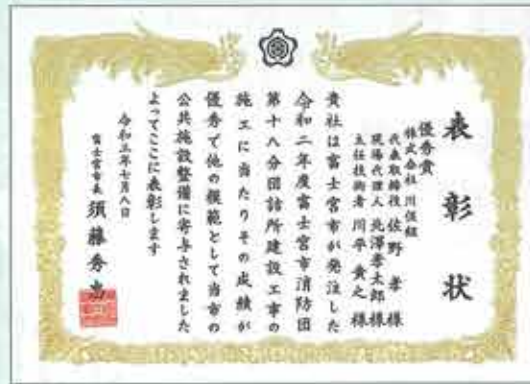 表彰状
優秀賞
株式会社 川伍組
代表取締役 佐野 孝 様
現場代理人 北澤孝太郎 様
主任技術者 川平貴之 様
貴社は富士宮市が発注した
令和二年度富士宮市消防団
第十八分団詰所建設工事の
施工に当たりその成績が
優秀で他の模範として当市の
公共施設整備に寄与されました
よってここに表彰します
令和三年七月八日
富士宮市長 須藤秀忠